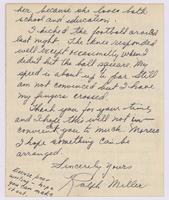 her, because she loves both
school and education.
I kicked the football around
last night. The knee responded
well except occasionally when I
didn't hit the ball square. My
speed is about up to par. Still
am not convinced but I have
my fingers crossed.
Thank you for your time,
and I hope this will not in-
convenient you to much. Moreso
I hope something can be
arranged.
Sincerely Yours
Ralph Miller
Excuse poor
writing - hope
you can make
it out